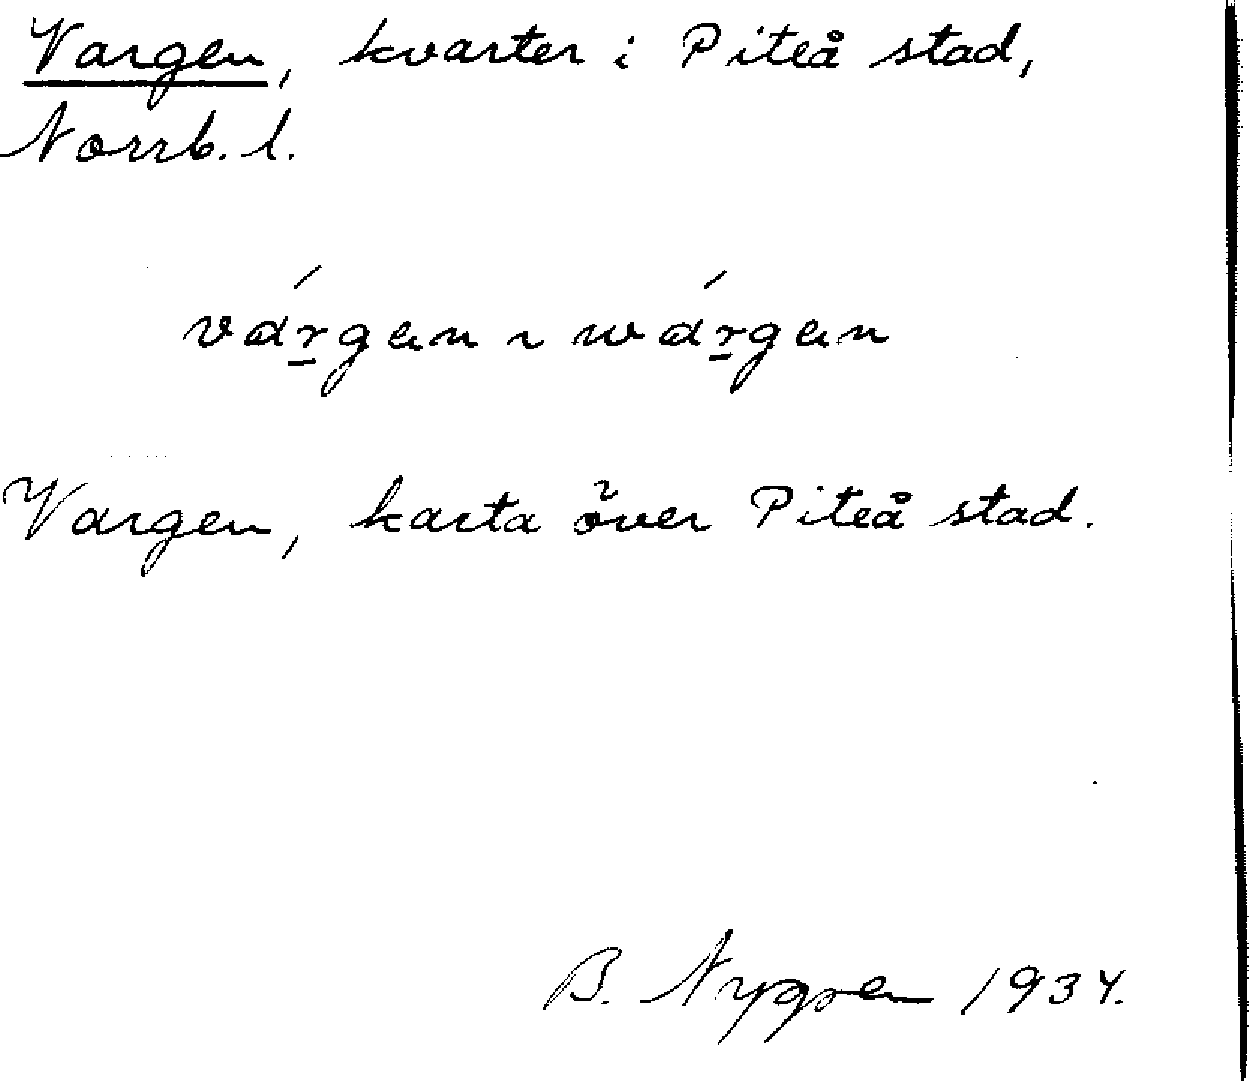 Vargen, kvarter i Piteå stad,
Norrb. l.
várgen ~ wárgen
Vargen, karta över Piteå stad.
B. Nygren 1934.